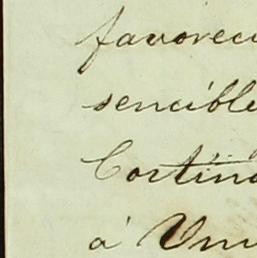 favoreci
sencible
Cortina
á Um